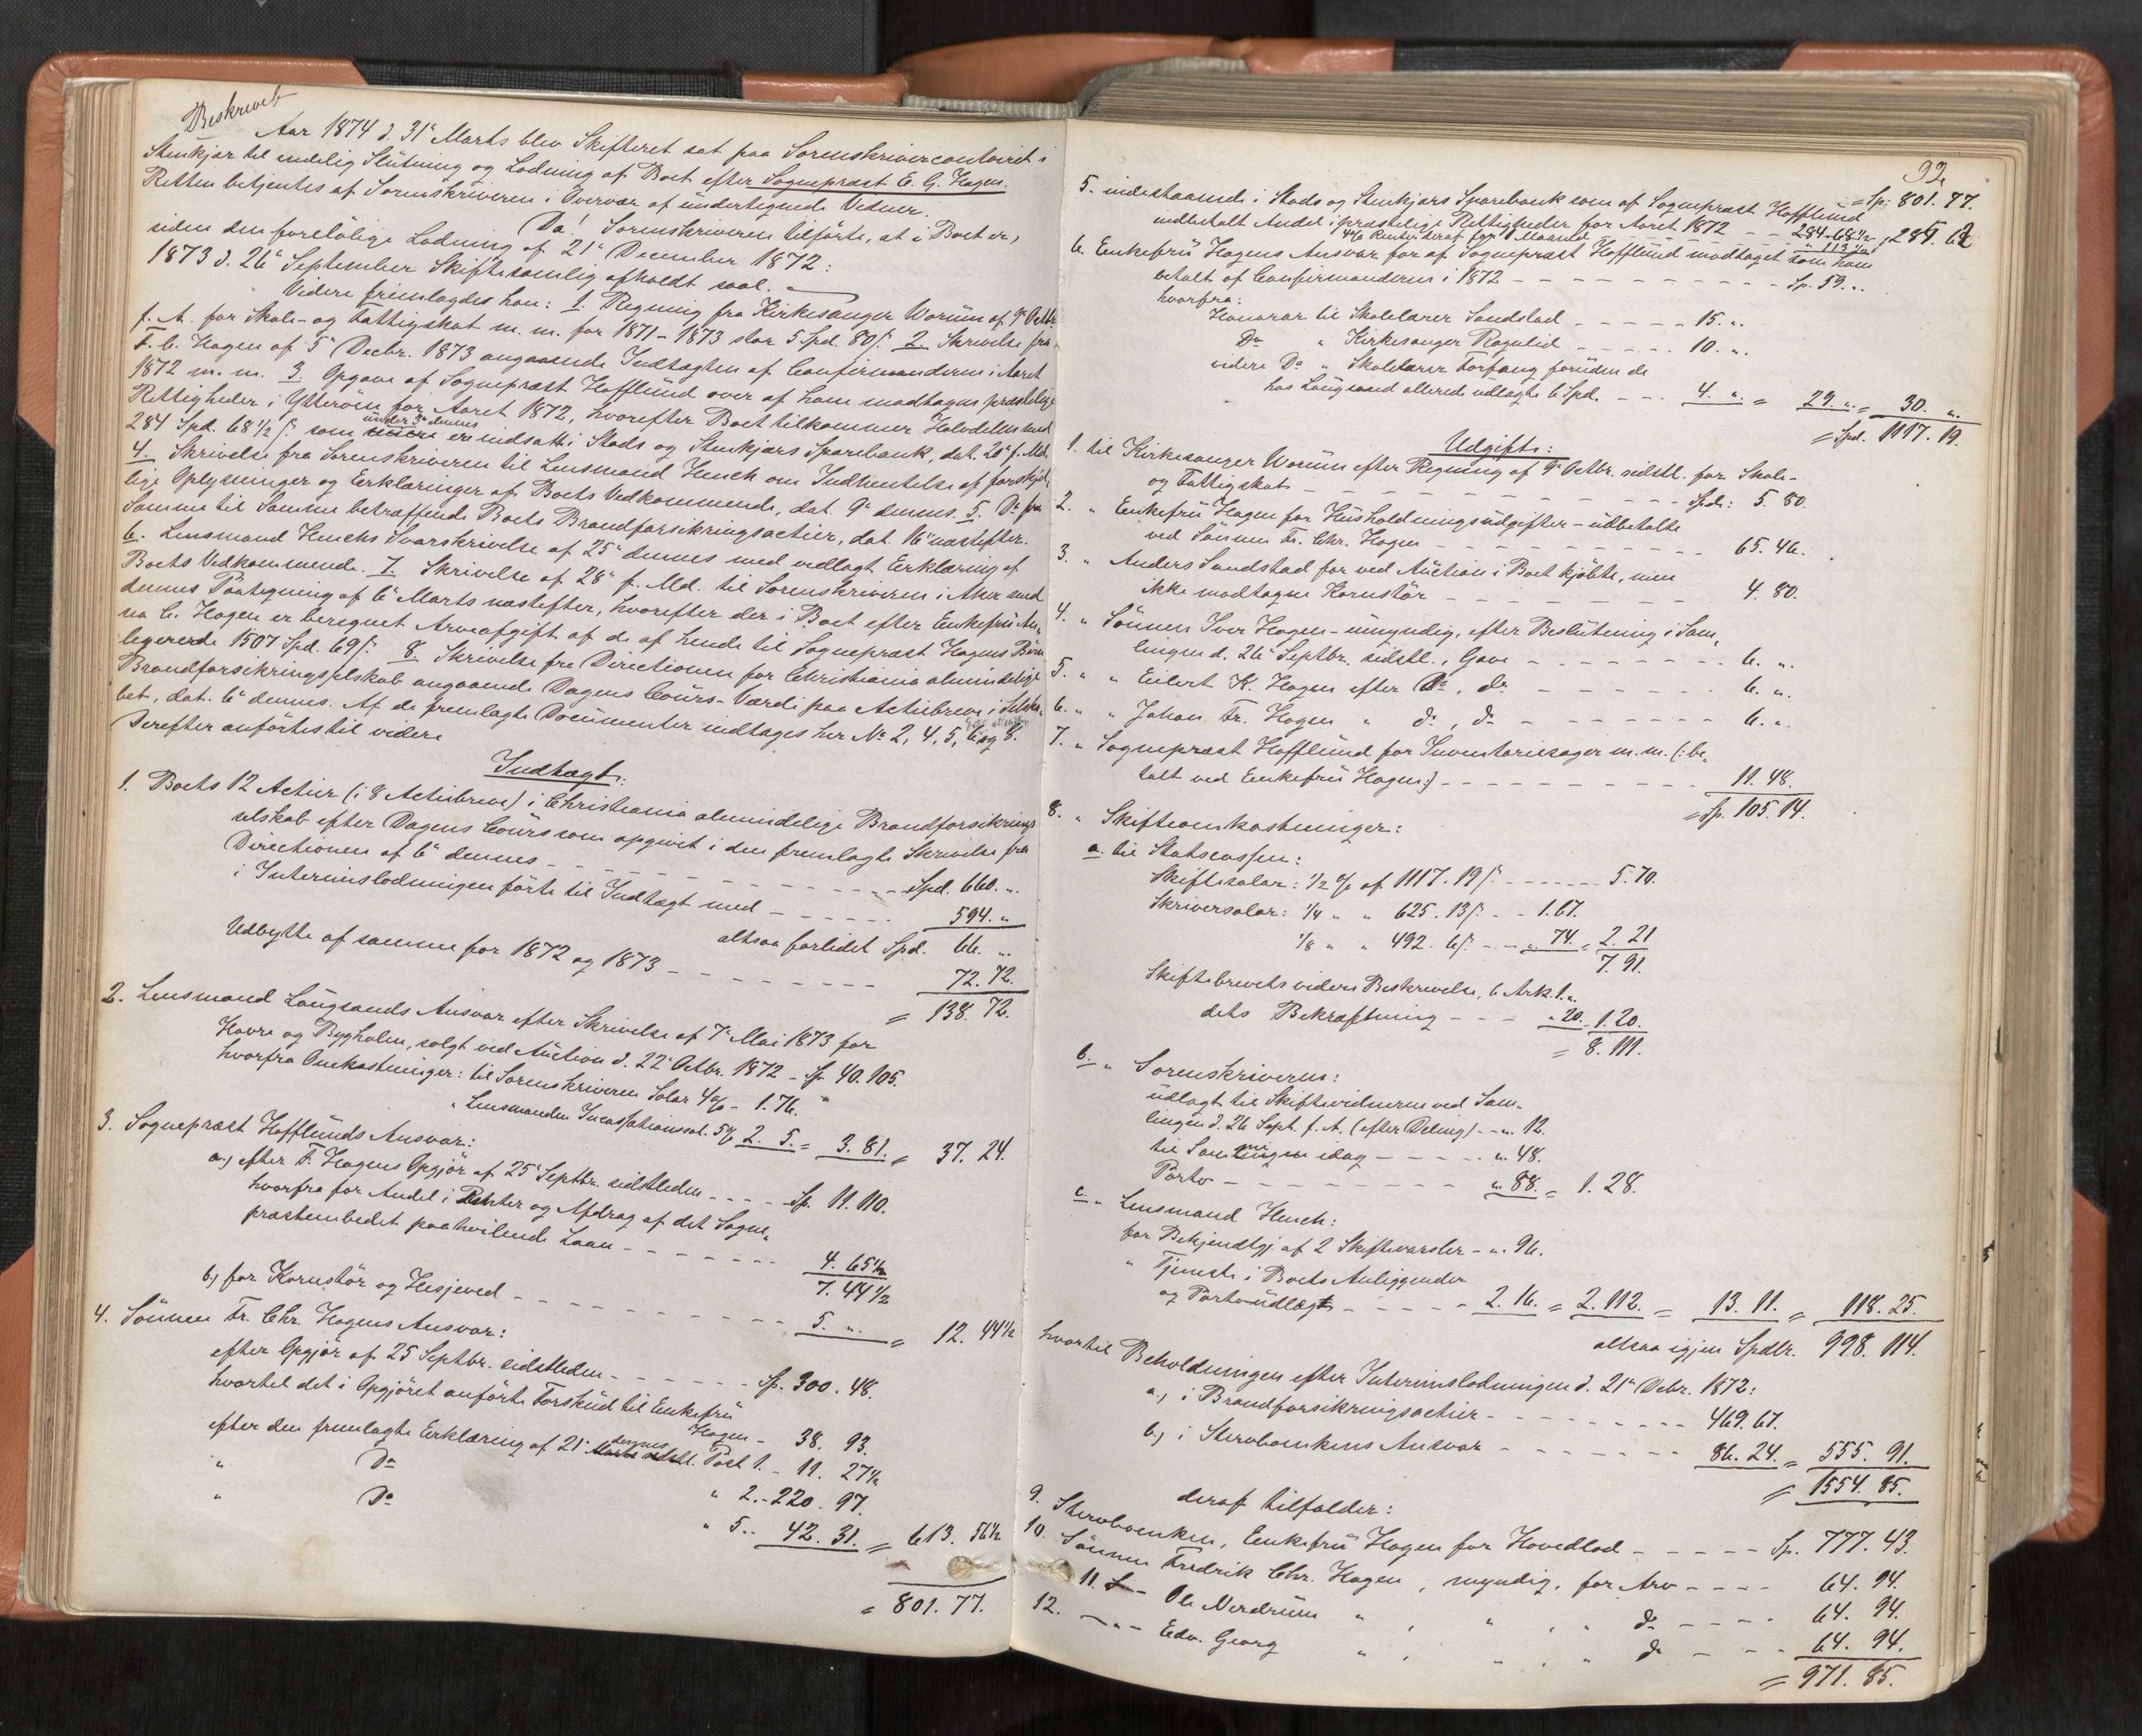 Beskrevet
Aar 1874 d. 31te Marts blev Skifteret sat paa Sorenskrivercontoiret i
Stenkjær til endelig Slutning og Lodning af Boet efter Sognepræst E. G. Hagen.
Retten betjentes af Sorenskriveren i Overvær af undertegnede Vidner.
Da! Sorenskriveren tilførte, at i Boet er,
siden den foreløbige Lodning af 21de December 1872:
1873 d. 26de September Skiftesamling afholdt saal.
Videre fremlagdes han: 1. Regning fra Kirkesanger Worum af 9de Octbr.
f. A. for Skole- og Fattigskat m. m. for 1871-1873 stor 5 Spd. 80 ß. 2. Skrivelse fra
F. C. Hagen af 5te Decbr. 1873 angaaende Indtægten af Confirmanderne i Aaret
1872 m. m. 3. Opgave af Sognepræst Hofflund over af ham modtagne præstelige
Rettigheder i Ytterøen for Aaret 1872, hvorefter Boet tilkommer Halvdelen med
284 Spd. 68 1/2 ß. som under 3de dennes er indsatt i Stods og Stenkjærs Sparebank, dat. 20de f. Md.
4. Skrivelse fra Sorenskriveren til Lensmand Hench om Indhentelse af forskjel-
lige Oplysninger og Erklæringer af Boets Vedkommende, dat. 9de dennes. 5. Do fra
Samme til Samme betræffende Boets Brandforsikringsactier, dat. 16de næstefter.
6. Lensmand Henchs Svarskrivelse af 25de dennes med vedlagt Erklæring af
Boets Vedkommende. 7. Skrivelse af 28de f. Md. til Sorenskriveren i Aker med
dennes Paategning af 6te Marts næstefter, hvorefter der i Boet efter Enkefru An-
na C. Hagen er beregnet Arveafgift af de af hende til Sognepræst Hagens Børn
legerede 1507 Spd. 69 ß. 8. Skrivelse fra Directionen for Christiania almindelige
Brandforsikringsselskab angaaende Dagens Cours-Værdi paa Actiebreve i Selska-
bet, dat. 6te dennes. Af de fremlagte Documenter indtages her No 2, 4, 5, 6 og 8.
Derefter anførtes til videre
Indtægt:
1. Boets 12 Actier (i 8 Actiebreve) i Christiania almindelige Brandforsikrings
selskab efter Dagens Cours som opgivet i den fremlagte Skrivelse fra
Directionen af 6te dennes - - - Spd. 660. "
i Interimslodningen førte til Indtægt med - - - 594. "
altsaa forlidet Spd. 66. "
Udbytte af samme for 1872 og 1873 - - - 72. 72.
= 138. 72.
2. Lensmand Laugsands Ansvar efter Skrivelse af 7de Mai 1873 for
Havre og Byghalm, solgt ved Auction d. 22de Octbr. 1872 - Sp. 40. 105.
hvorfra Omkostninger: til Sorenskriveren Solar 4 % - 1. 76.
" Lensmanden Incassationssal. 5 % 2. 5. = 3. 81. = 37. 24.
3. Sognepræst Hofflunds Ansvar:
a., efter F. Hagens Opgjør af 25de Septbr. sidstleden - - - Sp. 11. 110.
hvorfra for Andel i Renter og Afdrag af det Sogne-
præstembedet paahvilende Laan - - - 4. 65 1/2
7. 44 1/2
b., for Kornstør og Hesjeved - - - 5. " = 12. 44 1/2
4. Sønnen Fr. Chr. Hagens Ansvar:
efter Opgjør af 25 Septbr. sidstleden - - - Sp. 300. 48.
hvortil det i Opgjøret anførte Forskud til Enkefru
Hagen - 38. 93.
efter den fremlagte Erklæring af 21de dennes Post 1. - 11. 27 1/2
" Do " 2. - 220. 97.
" Do " 5. - 42. 31. = 613. 56 1/2
= 801. 77.
92.
= Sp: 801. 77.
5. indestaaende i Stods og Stenkjærs Sparebank som af Sognepræst Hofflund
indbetalt Andel i præstelige Rettigheder for Aaret 1872 - - 284. 68 1/2
4 % Renter deraf for 1 Maaned " 113 1/2 = 285. 62
6. Enkefru Hagens Ansvar for af Sognepræst Hofflund modtaget som ham
betalt af Confirmanderne i 1872 - - - Sp. 59. "
hvorfra:
Honorar til Skolelærer Sundstad - - - 15. "
Do " Kirkesanger Rygulid - - - 10. "
videre Do " Skolelærer Forfang foruden de
hos Laugsand allerede udlagte 6 Spd. - - - 4. " = 29. " = 30. "
= Spd. 1117. 19.
Udgift:
1. til Kirkesanger Worum efter Regning af 9de Octbr. sidstl. for Skole-
og Fattigskat - - - Spd: 5. 80.
2. " Enkefru Hagen for Husholdningsudgifter - udbetalte
ved Sønnen Fr. Chr. Hagen - - - 65. 46.
3. " Anders Sundstad for ved Auction i Boet kjøbte, men
ikke modtagne Kornstør - - - 4. 80.
4. " Sønnen Iver Hagen - umyndig, efter Beslutning i Sam-
lingen d. 26de Septbr. sidstl., Gave - - - 6. "
5. " " Eilert K. Hagen efter Do, do - - - 6. "
6. " " Johan Fr. Hagen " do, do - - - 6. "
7. " Sognepræst Hofflund for Inventariesager m. m. (: be-
talt ved Enkefru Hagen:) - - - 11. 48.
= Sp. 105. 14.
8. " Skifteomkostninger:
a. til Statscassen:
Skiftesalær: 1/2 % af 1117. 19 ß. - - - 5. 70.
Skriversalær: 1/4 " " 625. 13 ß. - - 1. 67.
1/8 " " 492. 6 ß. - - " 74. = 2. 21
7. 91.
Skiftebrevets videre Beskrivelse, 6 Ark. 1. "
dets Bekræftning - - - " 20. = 1. 20.
= 8. 111.
b. " Sorenskriveren:
udlagt til Skiftevidnerne ved Sam-
lingen d. 26 Sept. f. A. (efter Deling) - - ". 12.
til Samme idag - - - ". 48.
Porto - - - ". 88. = 1. 28.
c. " Lensmand Hench:
for Bekjendtgj. af 2 Skiftevarsler - ". 96.
" Tjeneste i Boets Anliggender
og Portoudlæg - - - 2. 16. = 2. 112. = 13. 11. = 118. 25.
altsaa igjen Spdlr. 998. 114.
hvortil Beholdningen efter Interimslodningen d. 21de Decbr. 1872:
a., i Brandforsikringsactier - - - 469. 67.
b., i Stervboenkens Ansvar - - - 86. 24. = 555. 91.
= 1554. 85.
deraf tilfalder:
9. Stervboenken, Enkefru Hagen for Hovedlod - - - Sp. 777. 43.
10. Sønnen Fredrik Chr. Hagen, myndig, for Arv - - - 64. 94.
11. " - Ole Nerdrum " , " , " do - - - 64. 94.
12. - " - Edv. Georg " , " , " do - - - 64. 94.
= 971. 85.